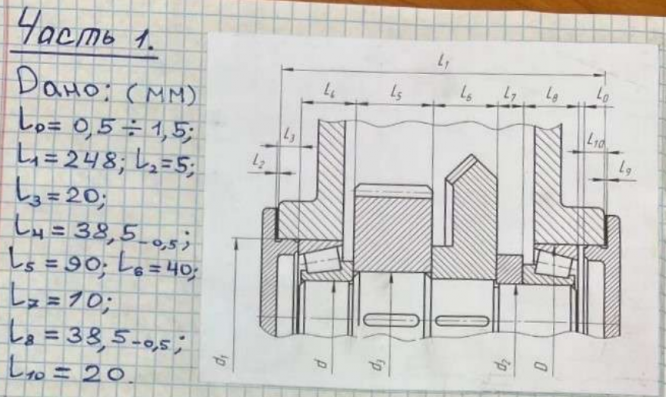 Часть 1.
Дано: (мм)
L₀ = 0,5 ÷ 1,5;
L₁ = 248; L₂ = 5;
L₃ = 20;
L₄ = 38,5₋₀,₅;
L₅ = 90; L₆ = 40;
L₇ = 10;
L₈ = 38,5₋₀,₅;
L₁₀ = 20.
L₁
L₄ L₅ L₆ L₇ L₈ L₀
L₃ L₁₀
L₂ L₉
d₁ d d₃ d₂ D